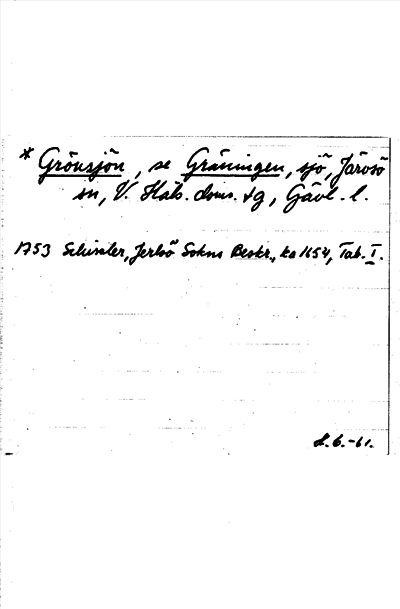 * Grönsjön, se Gränningen, sjö, Järvsö
sn, V. Häls. doms. dg, Gävl. l.
1753 Schissler, Jerlsö Sokns Beskr., ka 1654, Tab. I.
d. 6. -61.